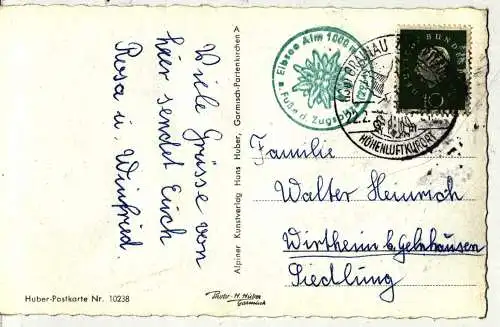 Viele Grüsse von
hier sendet Euch
Rosa u. Winfried.
Alpiner Kunstverlag Hans Huber, Garmisch-Partenkirchen
Huber-Postkarte Nr. 10238
Photo-H. Huber
Garmisch
Eibsee Alm 1000 m
a. Fuße d. Zugspitze
GRAINAU
HÖHENLUFTKURORT
BUNDES
10
Familie
Walter Heinrich
Wirtheim b. Gelnhausen
Siedlung